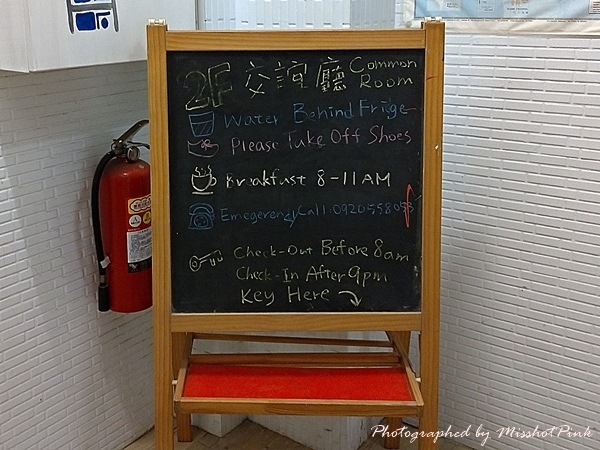 2F 交誼廳 Common Room
Water Behind Fridge
Please Take Off Shoes
Breakfast 8-11AM
Emegerency Call: 0920558053
Check-Out Before 8am
Check-In After 9pm
Key Here
Photographed by MisshotPink